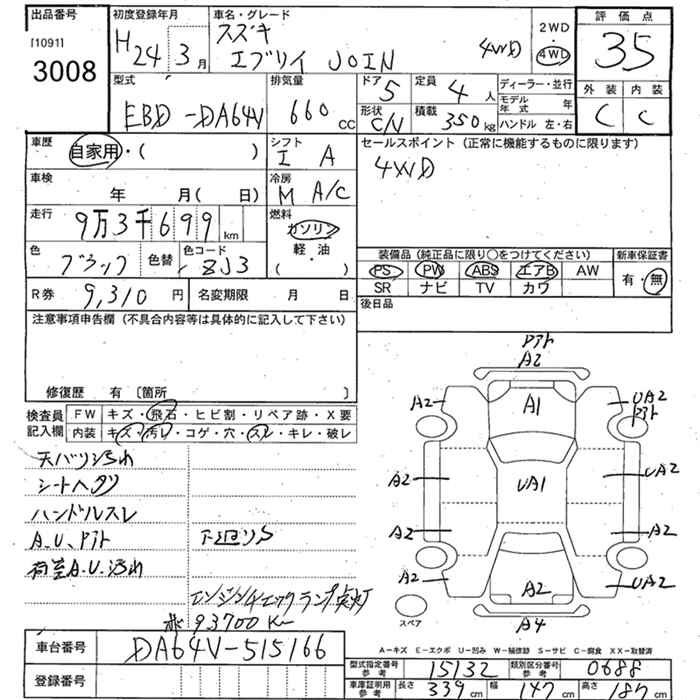 出品番号 初度登録年月 車名・グレード 評価点
[1091] H24年3月 スズキ 2WD 35
3008 エブリイ JOIN 4WD 4WD
型式 排気量 ドア 5 定員 4人 ディーラー・並行 外装 内装
モデル年式 年
EBD-DA64V 660cc 形状 CN 積載 350kg ハンドル 左・右 C C
車歴 自家用・( ) シフト I A セールスポイント (正常に機能するものに限ります)
車検 年 月( 日) 冷房 M A/C 4WD
走行 9万3千699km 燃料 ガソリン
軽・油
( )
色 ブラック 色替 色コード ZJ3
装備品 (純正品に限り○をつけてください) 新車保証書
PS PW ABS エアB AW 有・無
SR ナビ TV カワ
R券 9,310円 名変期限 月 日 後日品
注意事項申告欄 (不具合内容等は具体的に記入して下さい)
修復歴 有 [箇所 ]
検査員 FW キズ・飛石・ヒビ割・リペア跡・X要
記入欄 内装 キズ・汚レ・コゲ・穴・スレ・キレ・破レ
天バリシミ汚れ
シートヘタリ
ハンドルスレ
A.U、アト 下廻りS
荷室A.U.汚れ
エンジンチェックランプ点灯
93700K~
アト
A2
A2 A1 UA2
アト
A2 UA1 UA2
A2 A2
A2 A2 UA2
スペア A4
A-キズ E-エクボ U-凹み W-補修跡 S-サビ C-腐食 XX-取替済
車台番号 DA64V-515166
登録番号
型式指定番号 参考 15132 類別区分番号 参考 0688
車庫証明用 参考 長さ 339cm 幅 147cm 高さ 187cm